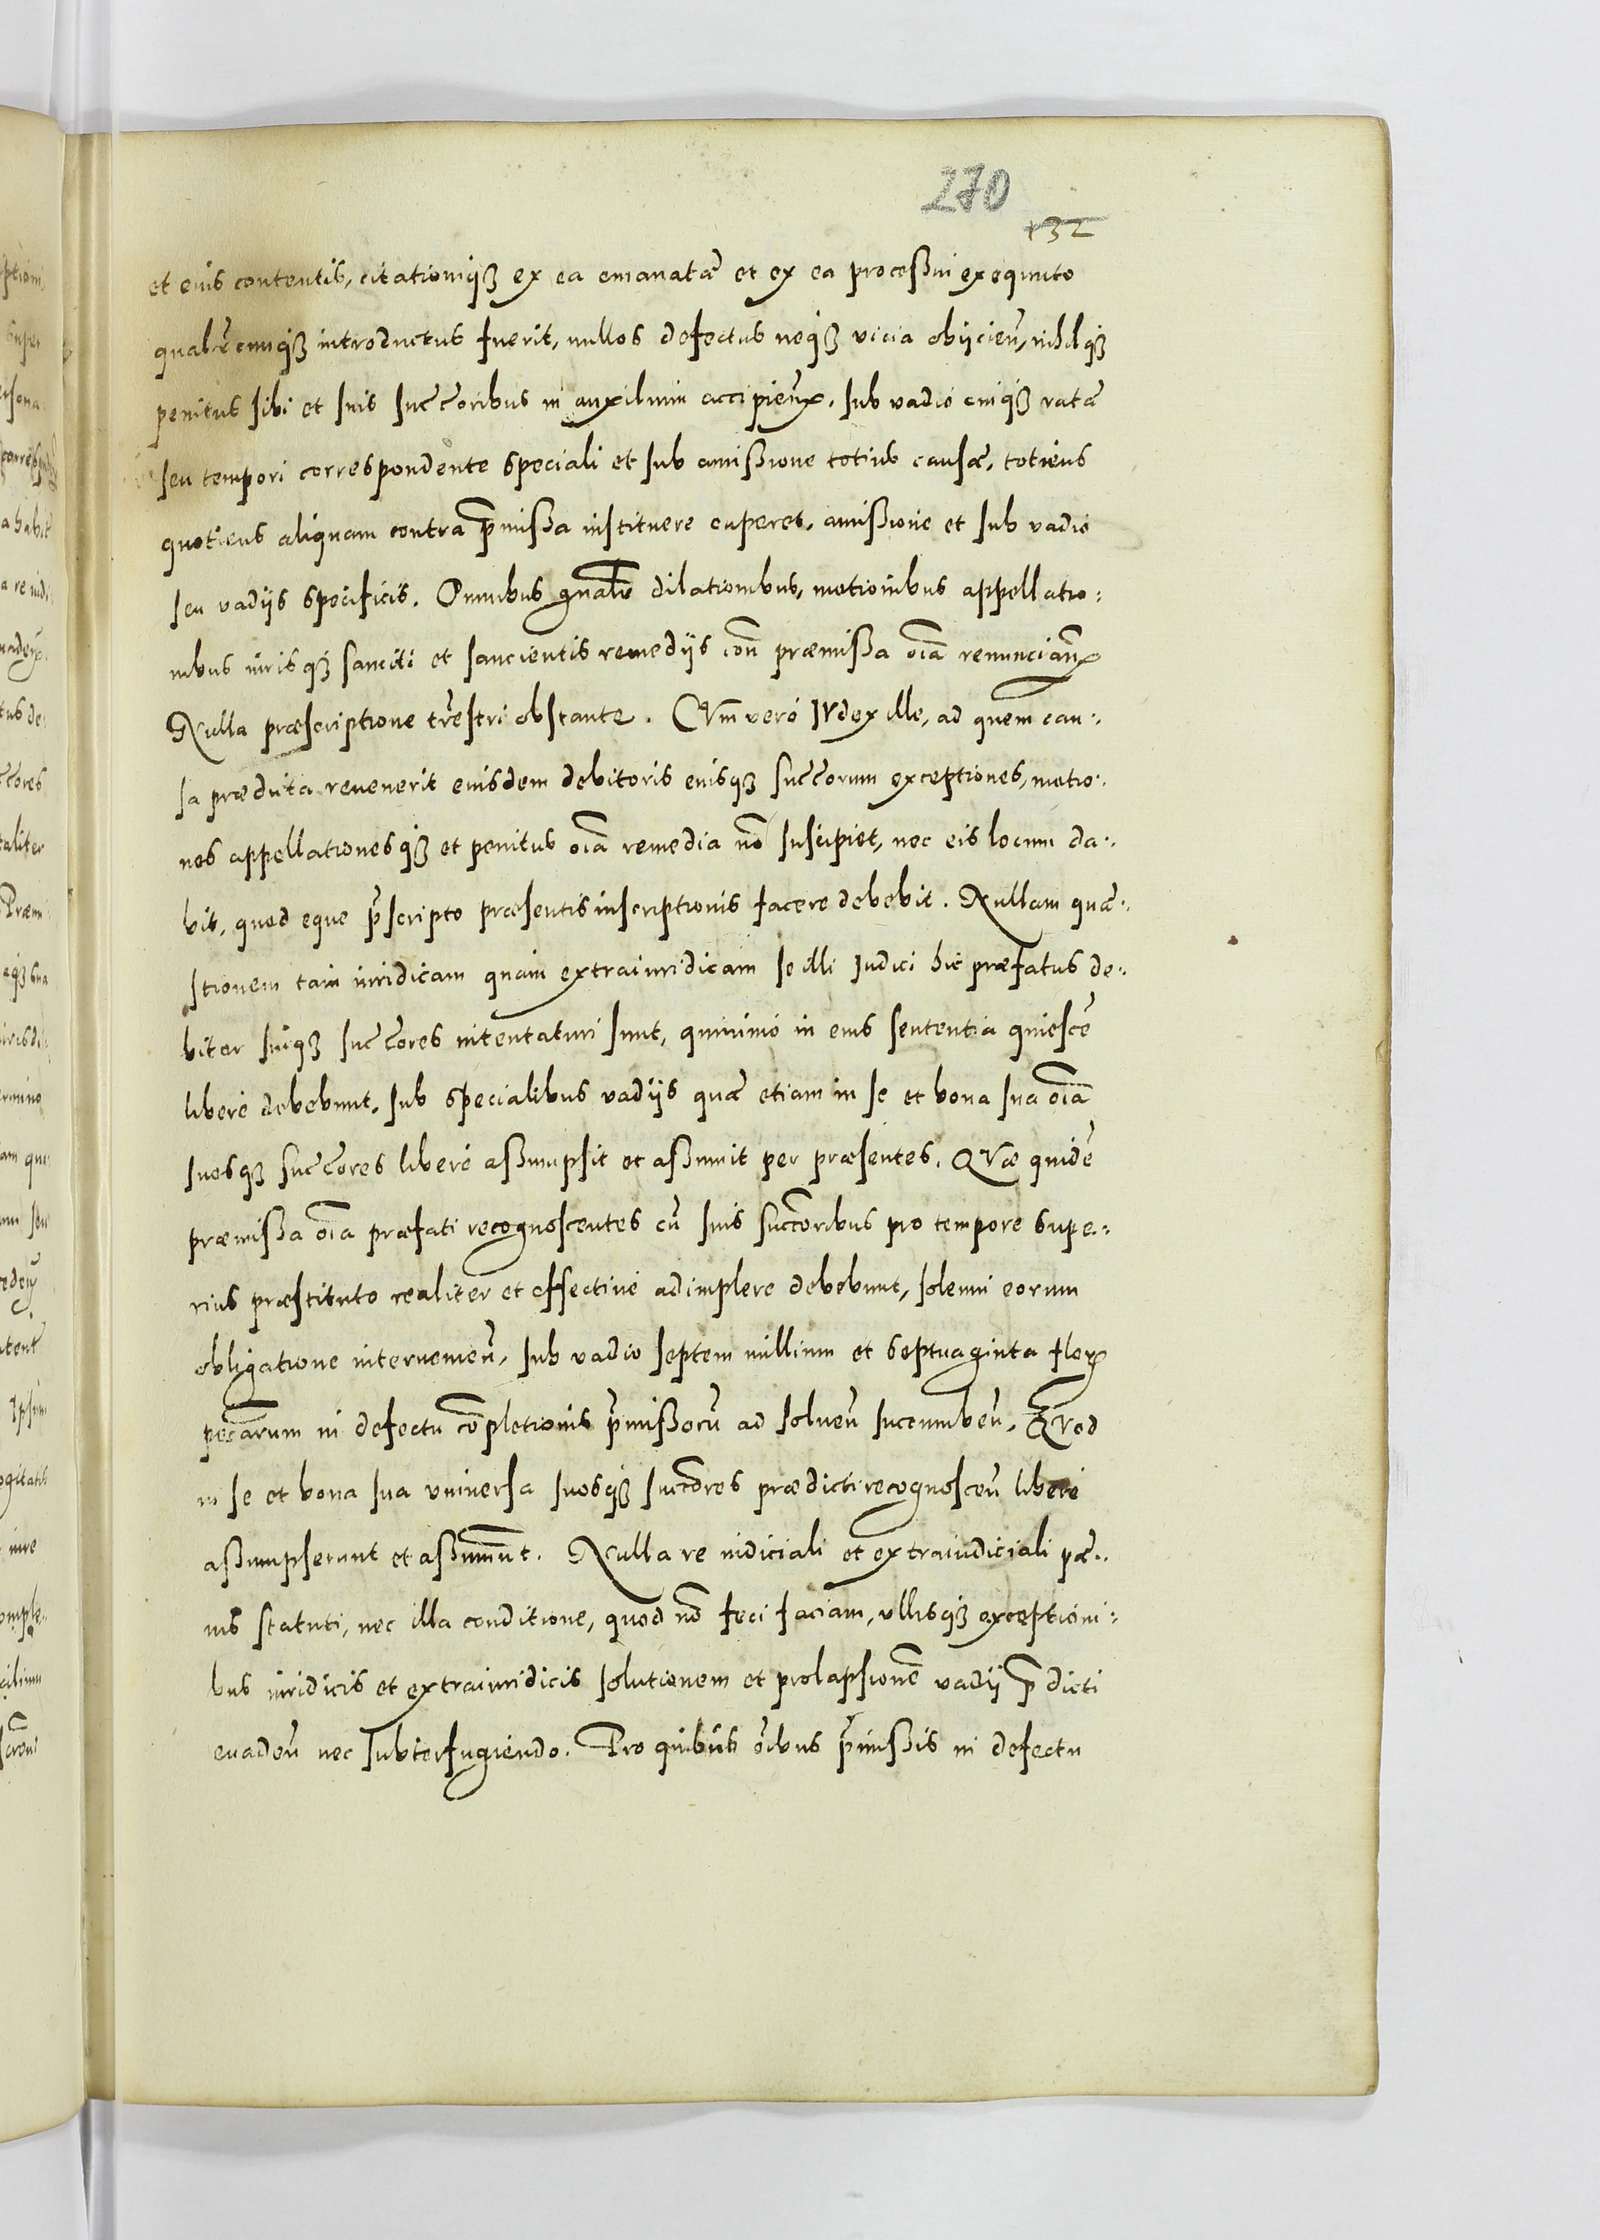 270
132
et eius contentis, citationiq₃ ex ea emanatæ et ex ea processui exequuto
qualr̃cunq₃ introductus fuerit, nullos defectus neq₃ vicia obijcieñ, nihilq₃
penitus sibi et suis succ̃oribus in auxilium accipieñ. sub vadio cuiq₃ ratæ
seu tempori correspondente speciali et sub amißione totius causæ, totiens
quotiens aliquam contra p̃mißa instituere cuperet, amißione et sub vadio
seu vadijs specificis. Omnibus gñalr̃ dilationibus, motionibus appellatio:
nibus iurisq₃ sanciti et sancientis remedijs coñ præmißa oĩa renuncian̄
Nulla præscriptione tr̃estri obstante. CVm vero IVdex ille, ad quem cau:
sa prædicta reuenerit eiusdem debitoris eiusq₃ succ̃orum exceptiones, motio:
nes appellationesq₃ et penitus oĩa remedia nõ suscipiet, nec eis locum da:
bit, quod eque p̃scripto præsentis inscriptionis facere debebit. Nullam quæ:
stionem tam iuridicam quam extraiuridicam se illi Iudici hic præfatus de:
bitor suiq₃ succ̃ores intentaturi sunt, quinimo in eius sententia quiescẽ
libere debebunt, sub specialibus vadijs quæ etiam in se et bona sua oĩa
suosq₃ succ̃ores libere aßumpsit et aßumit per præsentes. QVæ quidẽ
præmißa oĩa præfati recognoscentes cũ suis succ̃oribus pro tempore supe:
rius præstituto realiter et effectiue adimplere debebunt, solenni eorum
obligatione interuenieñ, sub vadio septem millium et septuaginta flor
pec̃arum in defectu cõpletionis p̃mißorũ ad solueñ succumbeñ. QVod
in se et bona sua vniuersa suosq₃ succ̃ores prædicti recognosceñ libere
aßumpserunt et aßumũt. Nulla re iudiciali et extraiudiciali pæ:
nis statuti, nec illa conditione, quod nõ feci faciam, vllisq₃ exceptioni:
bus iuridicis et extraiuridicis solutionem et prolapsionẽ vadij p̃dicti
euadeñ nec subterfugiendo. Pro quibus oĩbus p̃mißis in defectu